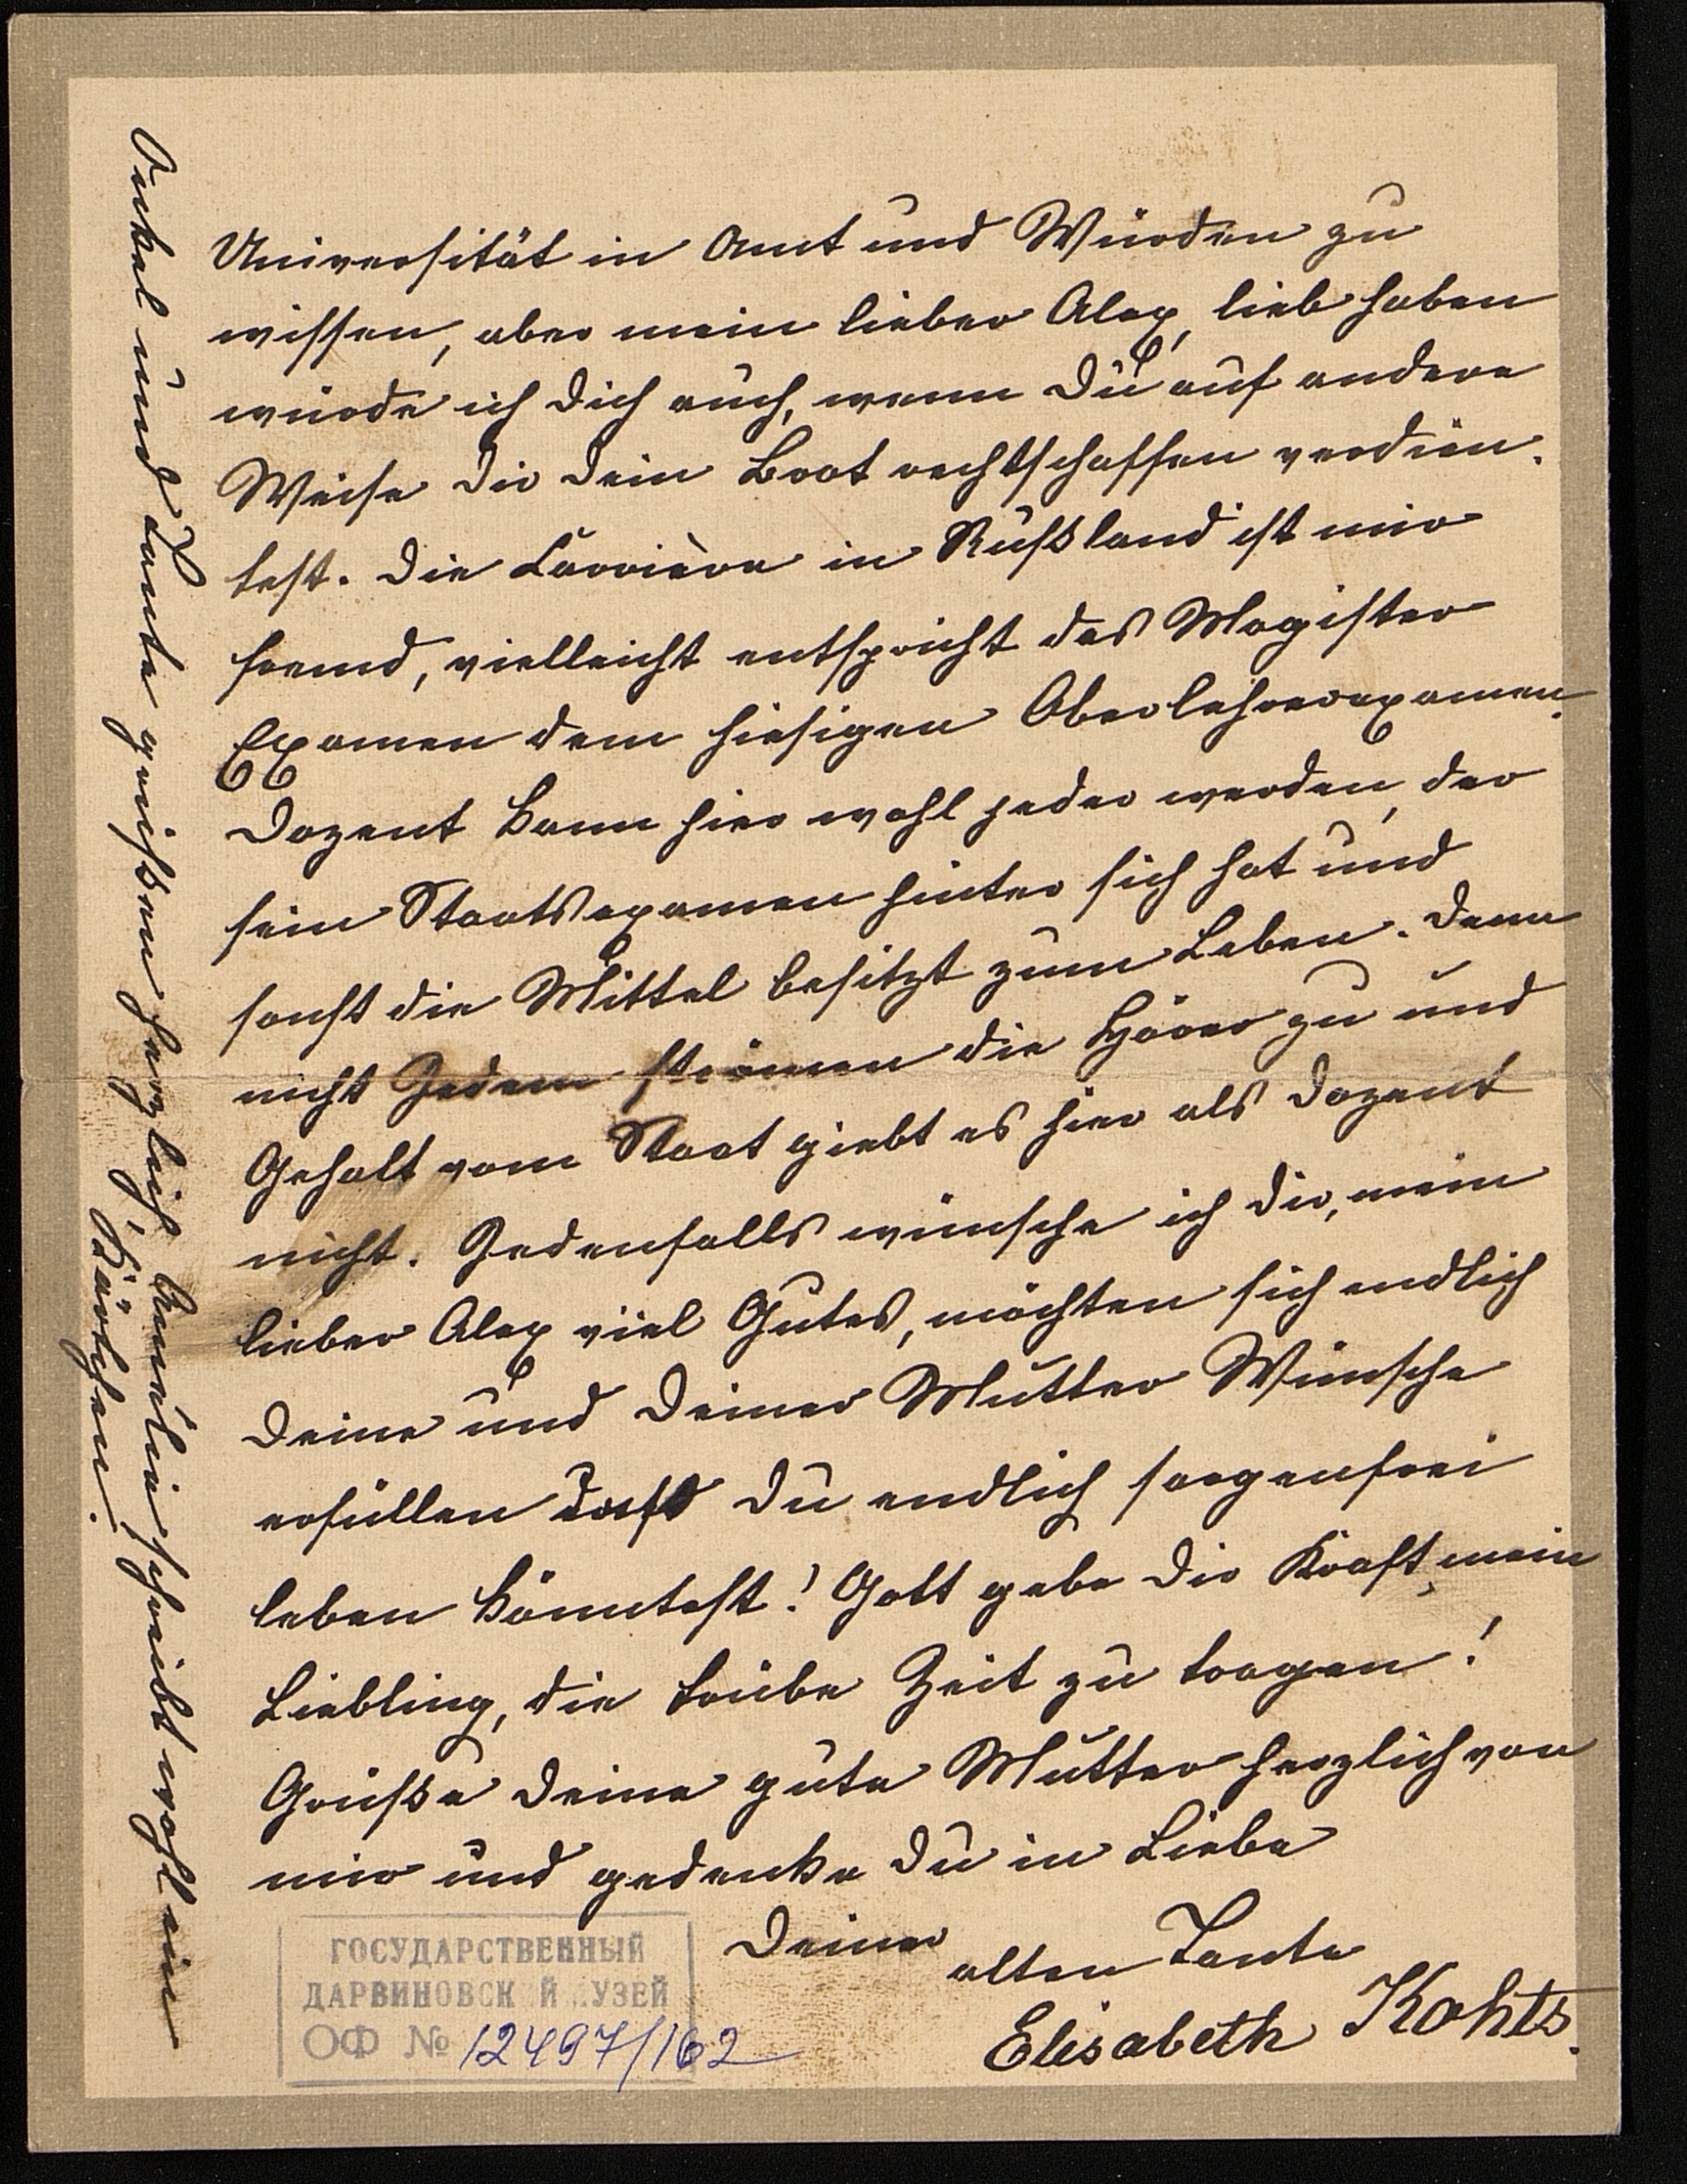 Universität in Amt und Würden zu
wissen, aber mein lieber Alex, lieb haben
würde ich Dich auch, wenn Du auf andere
Weise Dir Dein Brot rechtschaffen verdien-
test. Die Carrière in Rußland ist mir
fremd, vielleicht entspricht das Magister
Examen dem hiesigen Oberlehrerexamen.
Dozent kann hier wohl jeder werden, der
sein Staatsexamen hinter sich hat und
sonst die Mittel besitzt zum Leben. Denn
nicht Jedem strömen die Hörer zu und
Gehalt vom Staat giebt es hier als Dozent
nicht. Jedenfalls wünsche ich Dir, mein
lieber Alex viel Gutes, möchten sich endlich
Deine und Deiner Mutter Wünsche
erfüllen daß Du endlich sorgenfrei
leben könntest! Gott gebe Dir Kraft, mein
Liebling, die trübe Zeit zu tragen!
Grüße Deine gute Mutter herzlich von
mir und gedenke Du in Liebe
Deiner alten Tante
Elisabeth Kohts.
Onkel und Tante grüßen herzlich, Amélie schreibt wohl ein
Kärtchen.
ГОСУДАРСТВЕННЫЙ
ДАРВИНОВСК Й УЗЕЙ
ОФ № 12497/162